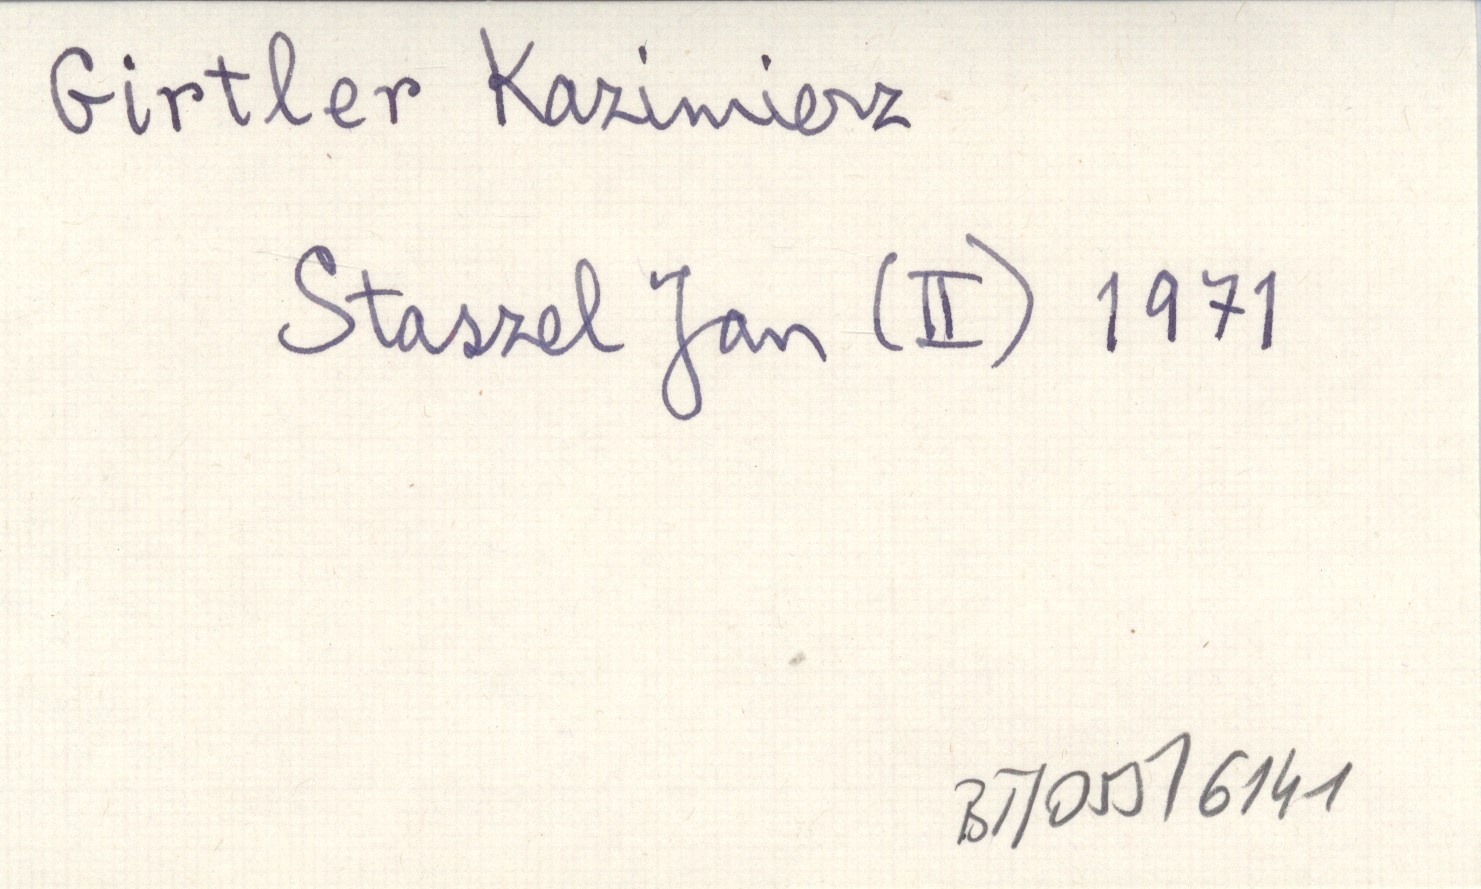 Girtler Kazimierz
Staszel Jan (II) 1971
BT/055/6141